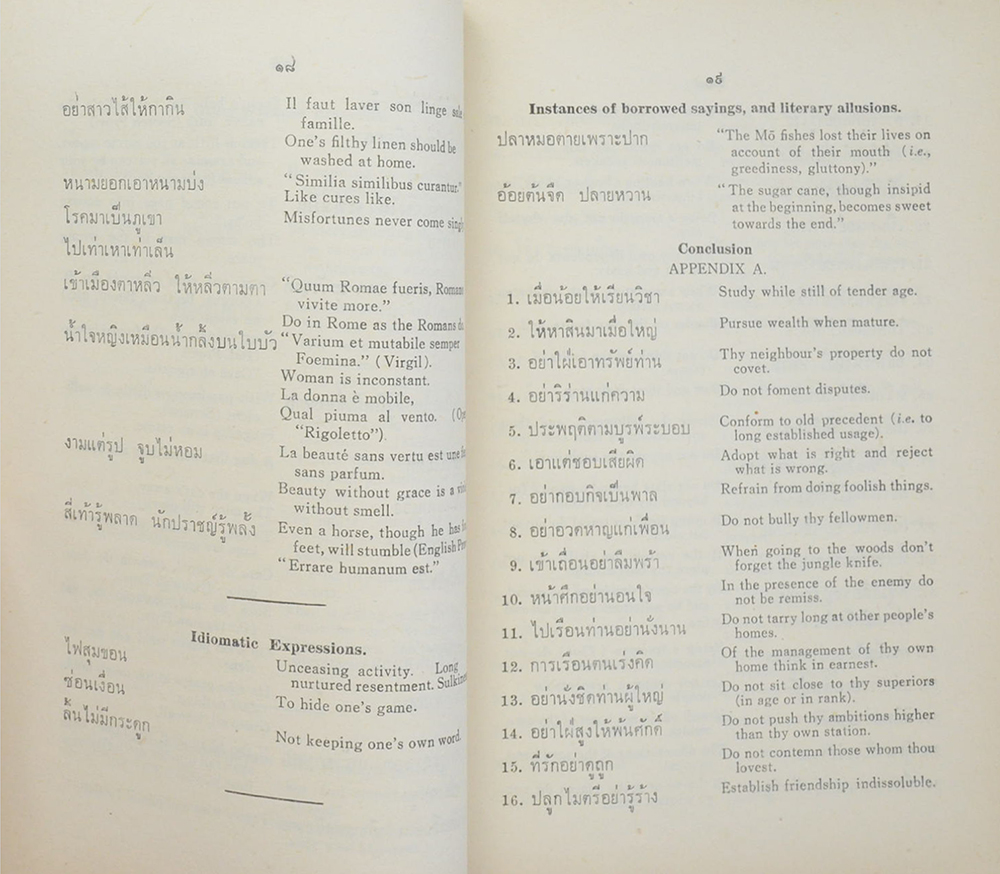 ๑๘
อย่าสาวไส้ให้กากิน
Il faut laver son linge sale
famille.
One's filthy linen should be
washed at home.
หนามยอกเอาหนามบ่ง
"Similia similibus curantur."
Like cures like.
โรคมาเป็นภูเขา
Misfortunes never come singly
ไปเท่าเหาเท่าเล็น
เข้าเมืองตาหลิ่ว ให้หลิ่วตามตา
"Quum Romae fueris, Romano
vivite more."
Do in Rome as the Romans do
น้ำใจหญิงเหมือนน้ำกลิ้งบนใบบัว
"Varium et mutabile semper
Foemina." (Virgil).
Woman is inconstant.
La donna è mobile,
Qual piuma al vento. (Ope
"Rigoletto").
งามแต่รูป จูบไม่หอม
La beauté sans vertu est une
sans parfum.
Beauty without grace is a
without smell.
สี่เท้ารู้พลาด นักปราชญ์รู้พลั้ง
Even a horse, though he has
feet, will stumble (English
"Errare humanum est."
Idiomatic Expressions.
ไฟสุมขอน
Unceasing activity. Long
nurtured resentment. Sulkiness
ซ่อนเงื่อน
To hide one's game.
ลิ้นไม่มีกระดูก
Not keeping one's own word.
๑๙
Instances of borrowed sayings, and literary allusions.
ปลาหมอตายเพราะปาก
"The Mō fishes lost their lives on
account of their mouth (i.e.,
greediness, gluttony)."
อ้อยต้นจืด ปลายหวาน
"The sugar cane, though insipid
at the beginning, becomes sweet
towards the end."
Conclusion
APPENDIX A.
1. เมื่อน้อยให้เรียนวิชา
Study while still of tender age.
2. ให้หาสินมาเมื่อใหญ่
Pursue wealth when mature.
3. อย่าใฝ่เอาทรัพย์ท่าน
Thy neighbour's property do not
covet.
4. อย่าริร่านแก่ความ
Do not foment disputes.
5. ประพฤติตามบูรพ์ระบอบ
Conform to old precedent (i.e. to
long established usage).
6. เอาแต่ชอบเสียผิด
Adopt what is right and reject
what is wrong.
7. อย่ากอบกิจเป็นพาล
Refrain from doing foolish things.
8. อย่าอวดหาญแก่เพื่อน
Do not bully thy fellowmen.
9. เข้าเถื่อนอย่าลืมพร้า
When going to the woods don't
forget the jungle knife.
10. หน้าศึกอย่านอนใจ
In the presence of the enemy do
not be remiss.
11. ไปเรือนท่านอย่านั่งนาน
Do not tarry long at other people's
homes.
12. การเรือนตนเร่งคิด
Of the management of thy own
home think in earnest.
13. อย่านั่งชิดท่านผู้ใหญ่
Do not sit close to thy superiors
(in age or in rank).
14. อย่าใฝ่สูงให้พ้นศักดิ์
Do not push thy ambitions higher
than thy own station.
15. ที่รักอย่าดูถูก
Do not contemn those whom thou
lovest.
16. ปลูกไมตรีอย่ารู้ร้าง
Establish friendship indissoluble.